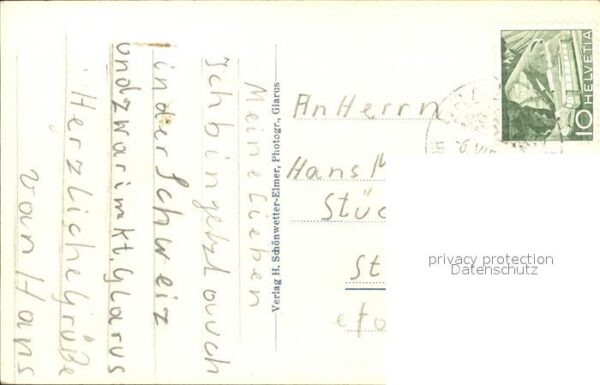 Meine Lieben
Ich bin jetzt auch
in der Schweiz
und zwar im Kt. Glarus
Herzliche Grüße
von Hans
Verlag H. Schönwetter-Elmer, Photogr., Glarus
An Herrn
Hans
Stü
St
HELVETIA
10
privacy protection
Datenschutz